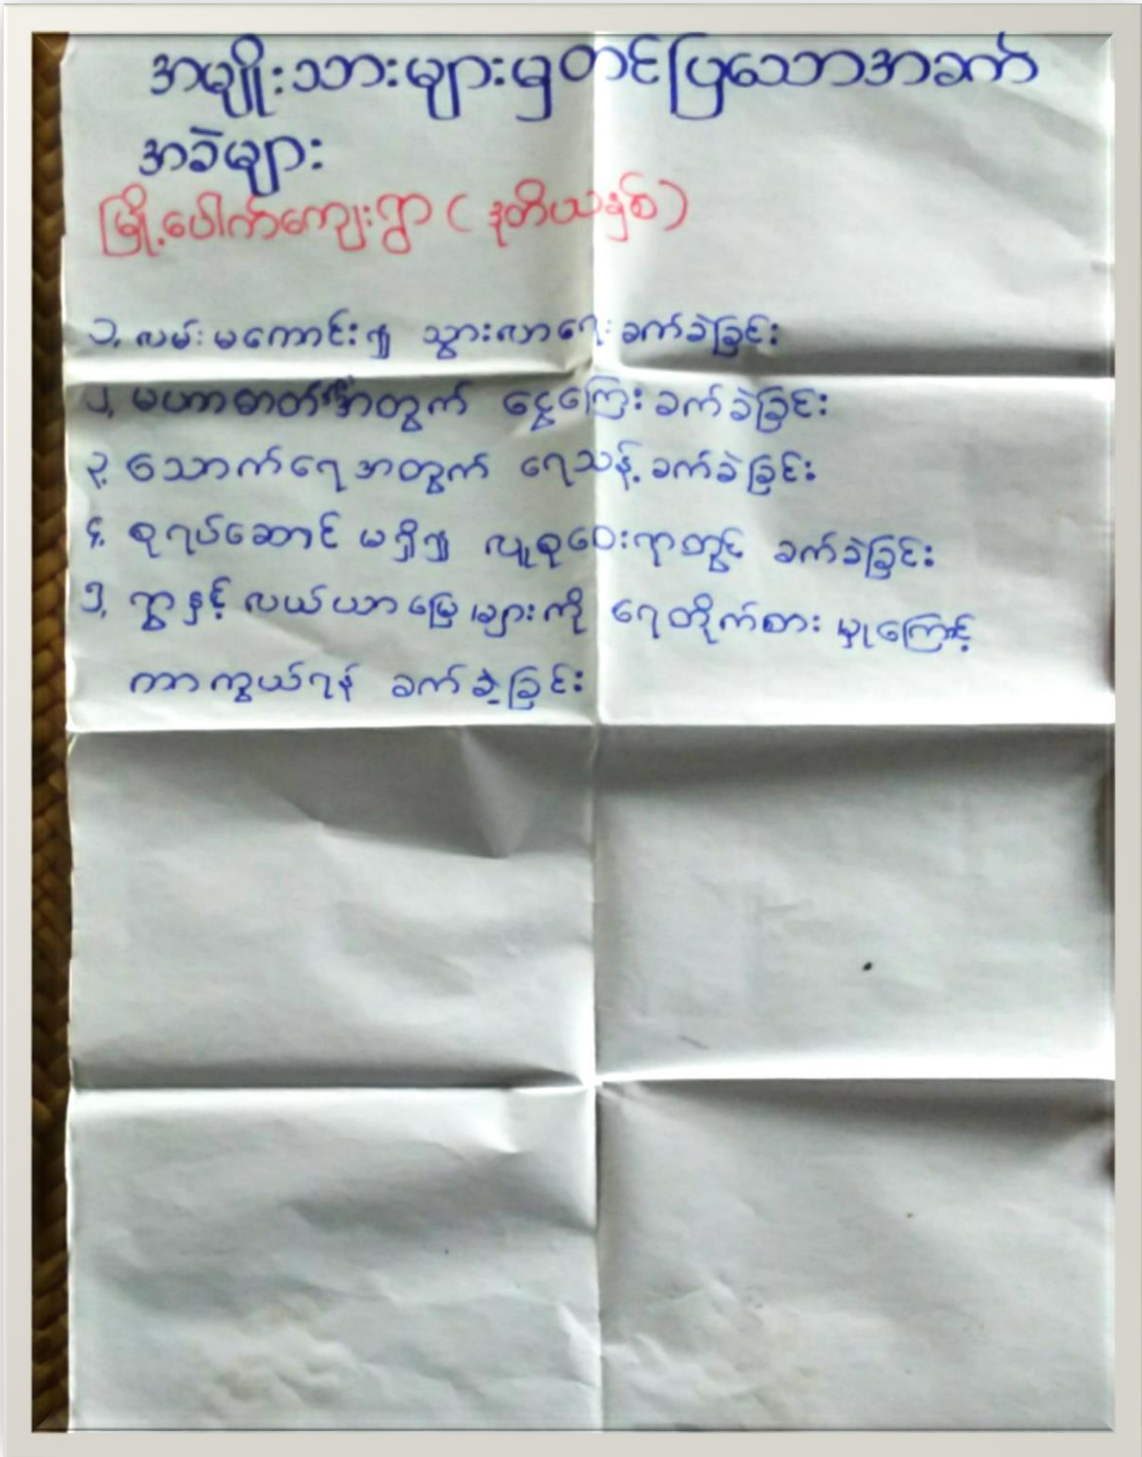 အမျိုးသားများမှတင်ပြသောအခက်
အခဲများ
မြို့ပေါက်ကျေးရွာ ( ဒုတိယနှစ် )
၁. လမ်းမကောင်း၍ သွားလာရေးခက်ခဲခြင်း
၂. မဟာဓာတ်အားအတွက် ငွေကြေးခက်ခဲခြင်း
၃. သောက်ရေအတွက် ရေသန့်ခက်ခဲခြင်း
၄. စုရပ်ဆောင် မရှိ၍ လူစုဝေးရာတွင် ခက်ခဲခြင်း
၅. ရွာနှင့် လယ်ယာမြေများကို ရေတိုက်စားမှုကြောင့်
ကာကွယ်ရန် ခက်ခဲခြင်း